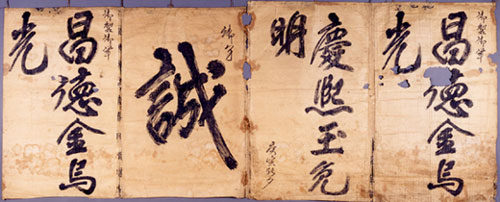 昌德金烏
光
御製御筆
慶熙玉兔
明
御筆
誠
昌德金烏
光
御製御筆